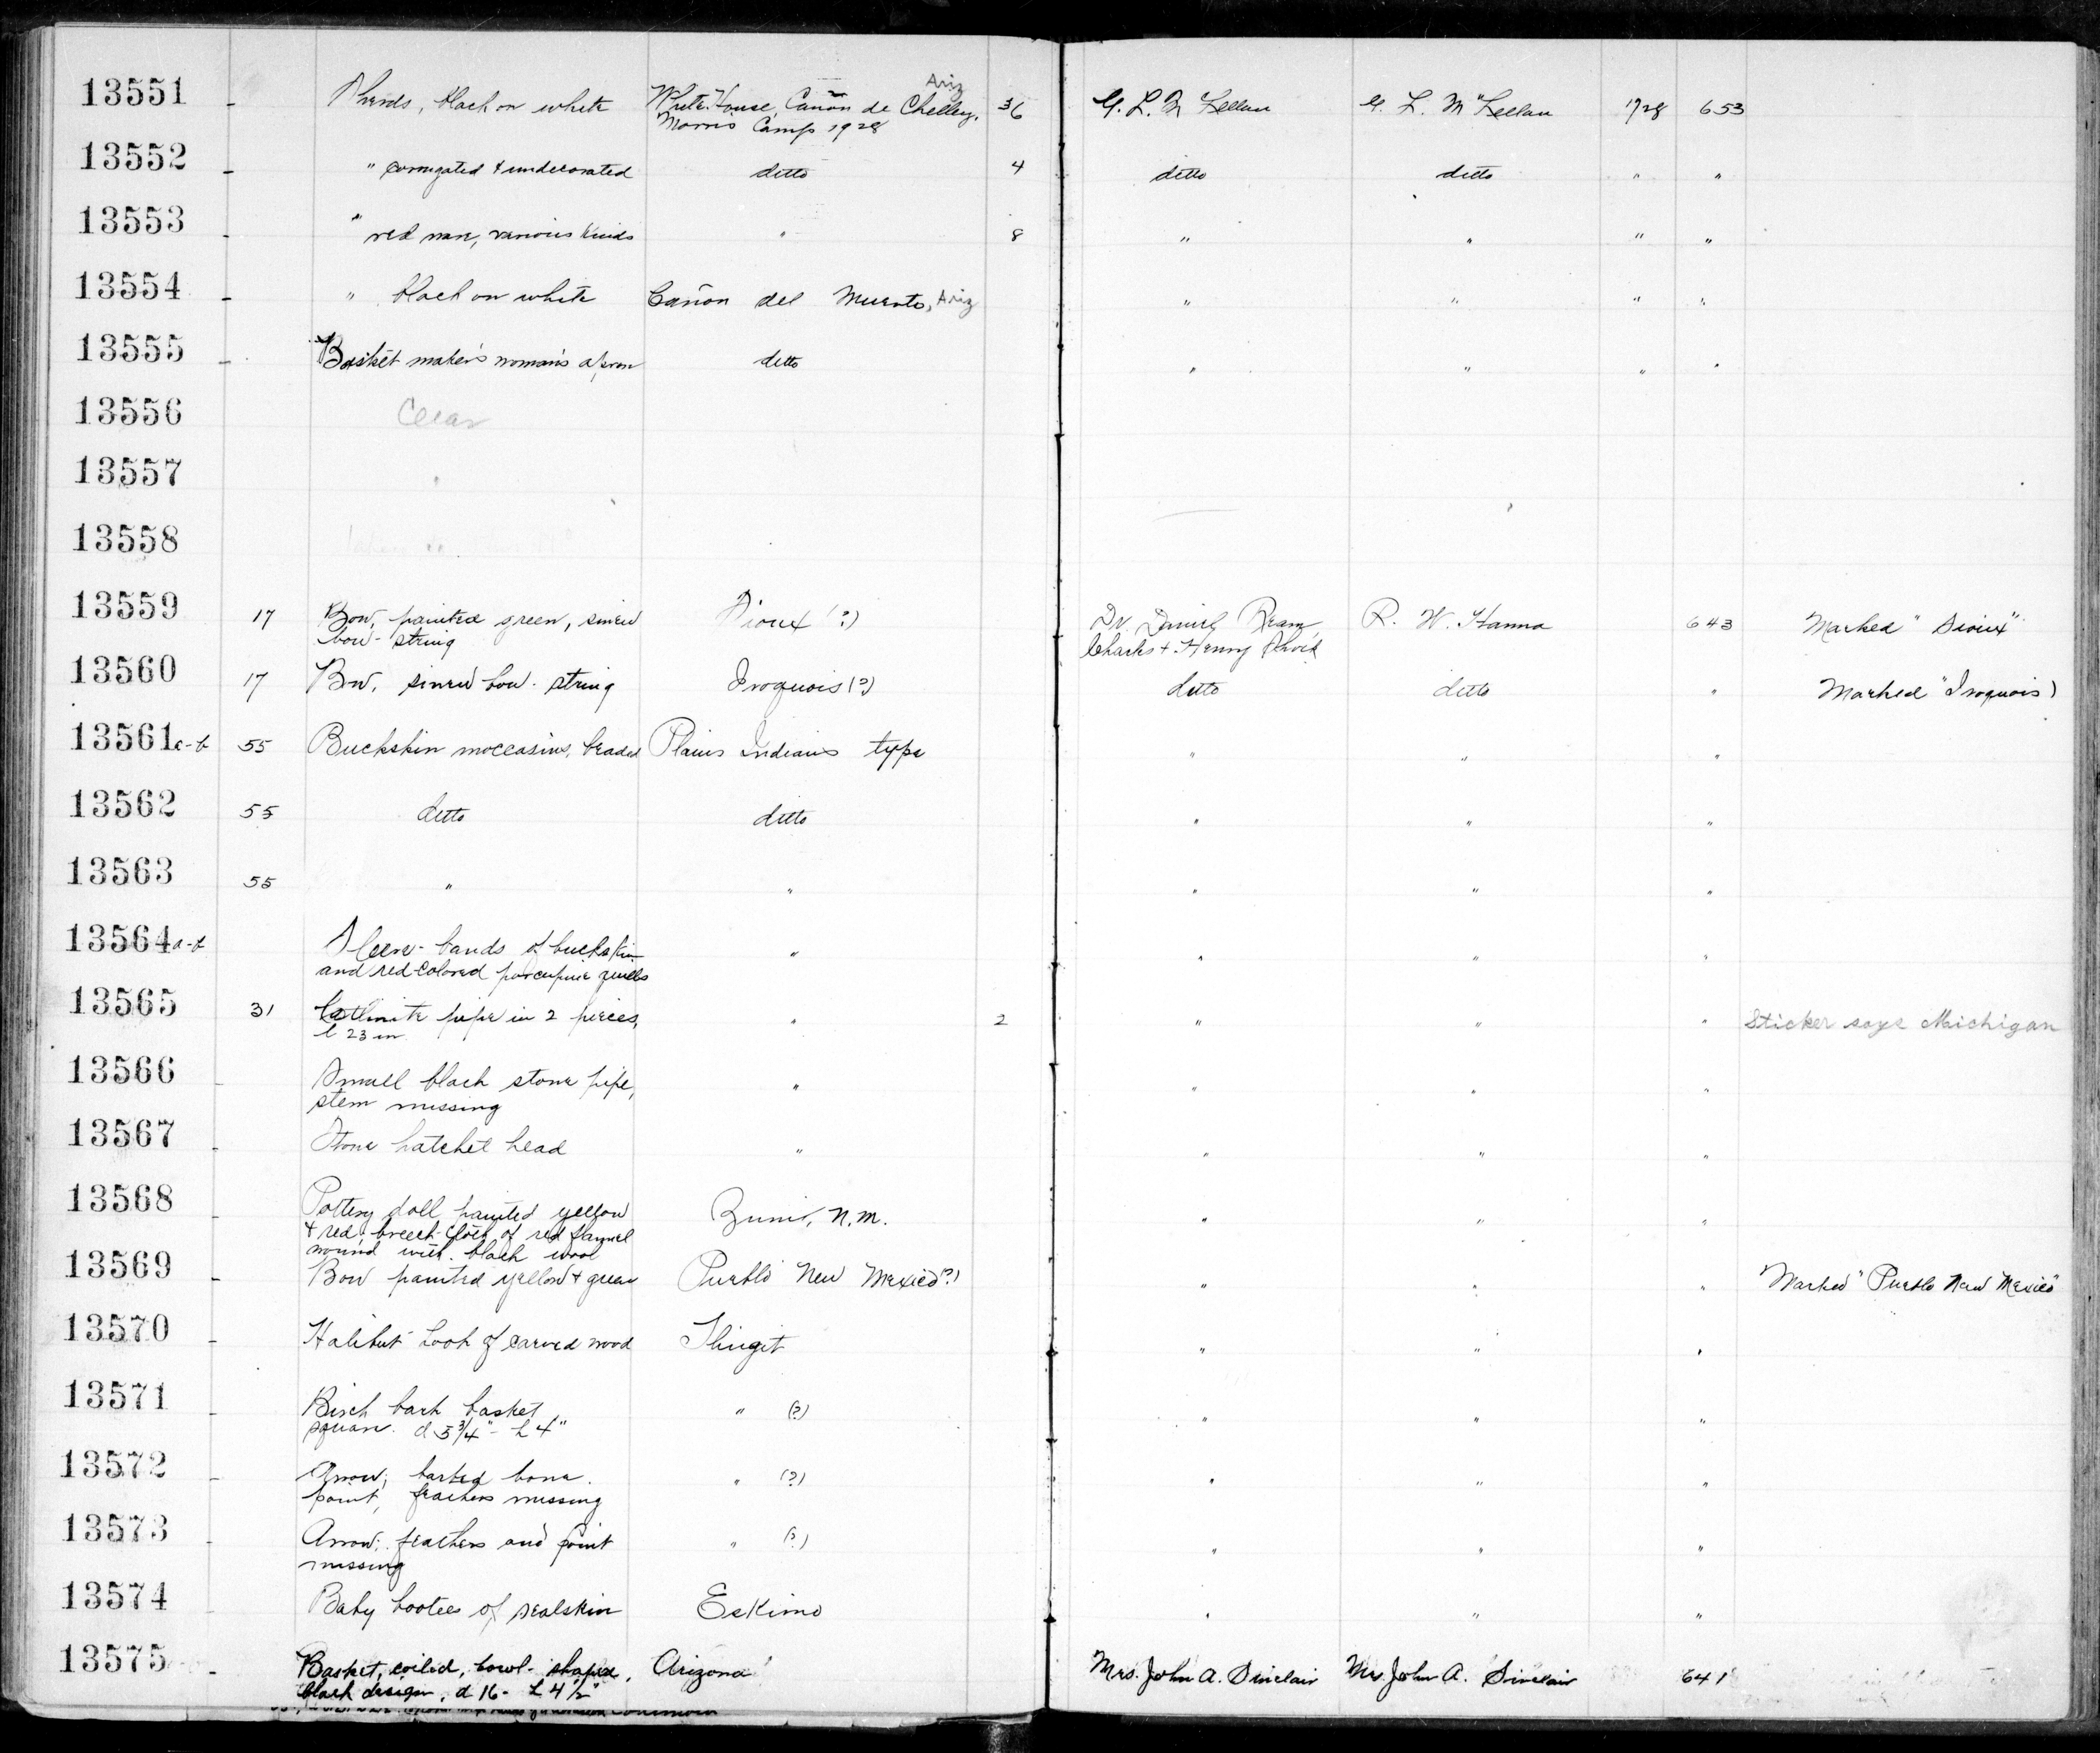 13551 - Sherds, black on white White House, Cañon de Chelley, Ariz 36 G. L. McLellan G. L. McLellan 1928 653
Morris Camp 1928
13552 - " corrugated & undecorated ditto 4 ditto ditto " "
13553 - " red ware, various kinds " 8 " " " "
13554 - " black on white Cañon del Muerto, Ariz " " " "
13555 - Basket maker's woman's apron ditto " " " "
13556 Clear
13557
13558
13559 17 Bow, painted green, sinew Sioux (?) Dr. Daniel R. W. Hanna 643 Marked "Sioux"
bow-string Charles & Henry
13560 17 Bow, sinew bow-string Iroquois (?) ditto ditto " Marked "Iroquois)
13561a-b 55 Buckskin moccasins, beaded Plains Indians type " " "
13562 55 ditto ditto " " "
13563 55 " " " " "
13564a-b Sleeve-bands of buckskin " " " "
and red-colored porcupine quills
13565 31 Catlinite pipe in 2 pieces, " 2 " " " Sticker says Michigan
l 23 in
13566 - Small black stone pipe, " " " "
stem missing
13567 - Stone hatchet head " " " "
13568 - Pottery doll painted yellow Zuni, N.M. " " "
& red, breech-cloth of red flannel
wound with black wool
13569 - Bow painted yellow & green Pueblo New Mexico (?) " " " Marked "Pueblo New Mexico"
13570 - Halibut hook of carved wood Tlingit " " "
13571 - Birch bark basket " (?) " " "
square. d 5 3/4" - h 4"
13572 - Arrow; barbed bone " (?) " " "
point, feathers missing
13573 - Arrow; feathers and point " (?) " " "
missing
13574 - Baby bootees of sealskin Eskimo " " "
13575 - Basket, coiled, bowl-shaped, Arizona Mrs. John A. Sinclair Mrs. John A. Sinclair 641
black design, d 16 - h 4 1/2"